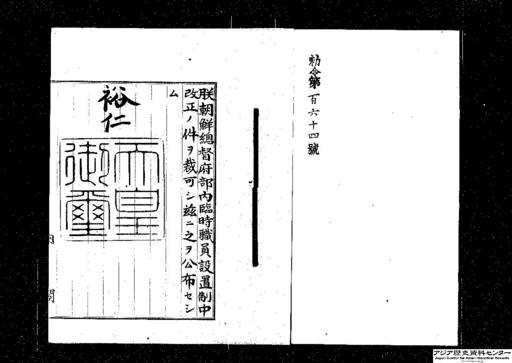 勅令第百六十四號
朕朝鮮總督府部內臨時職員設置制中
改正ノ件ヲ裁可シ玆ニ之ヲ公布セシ
ム
裕仁
天皇
御璽
內閣
アジア歴史資料センター
Japan Center for Asian Historical Records